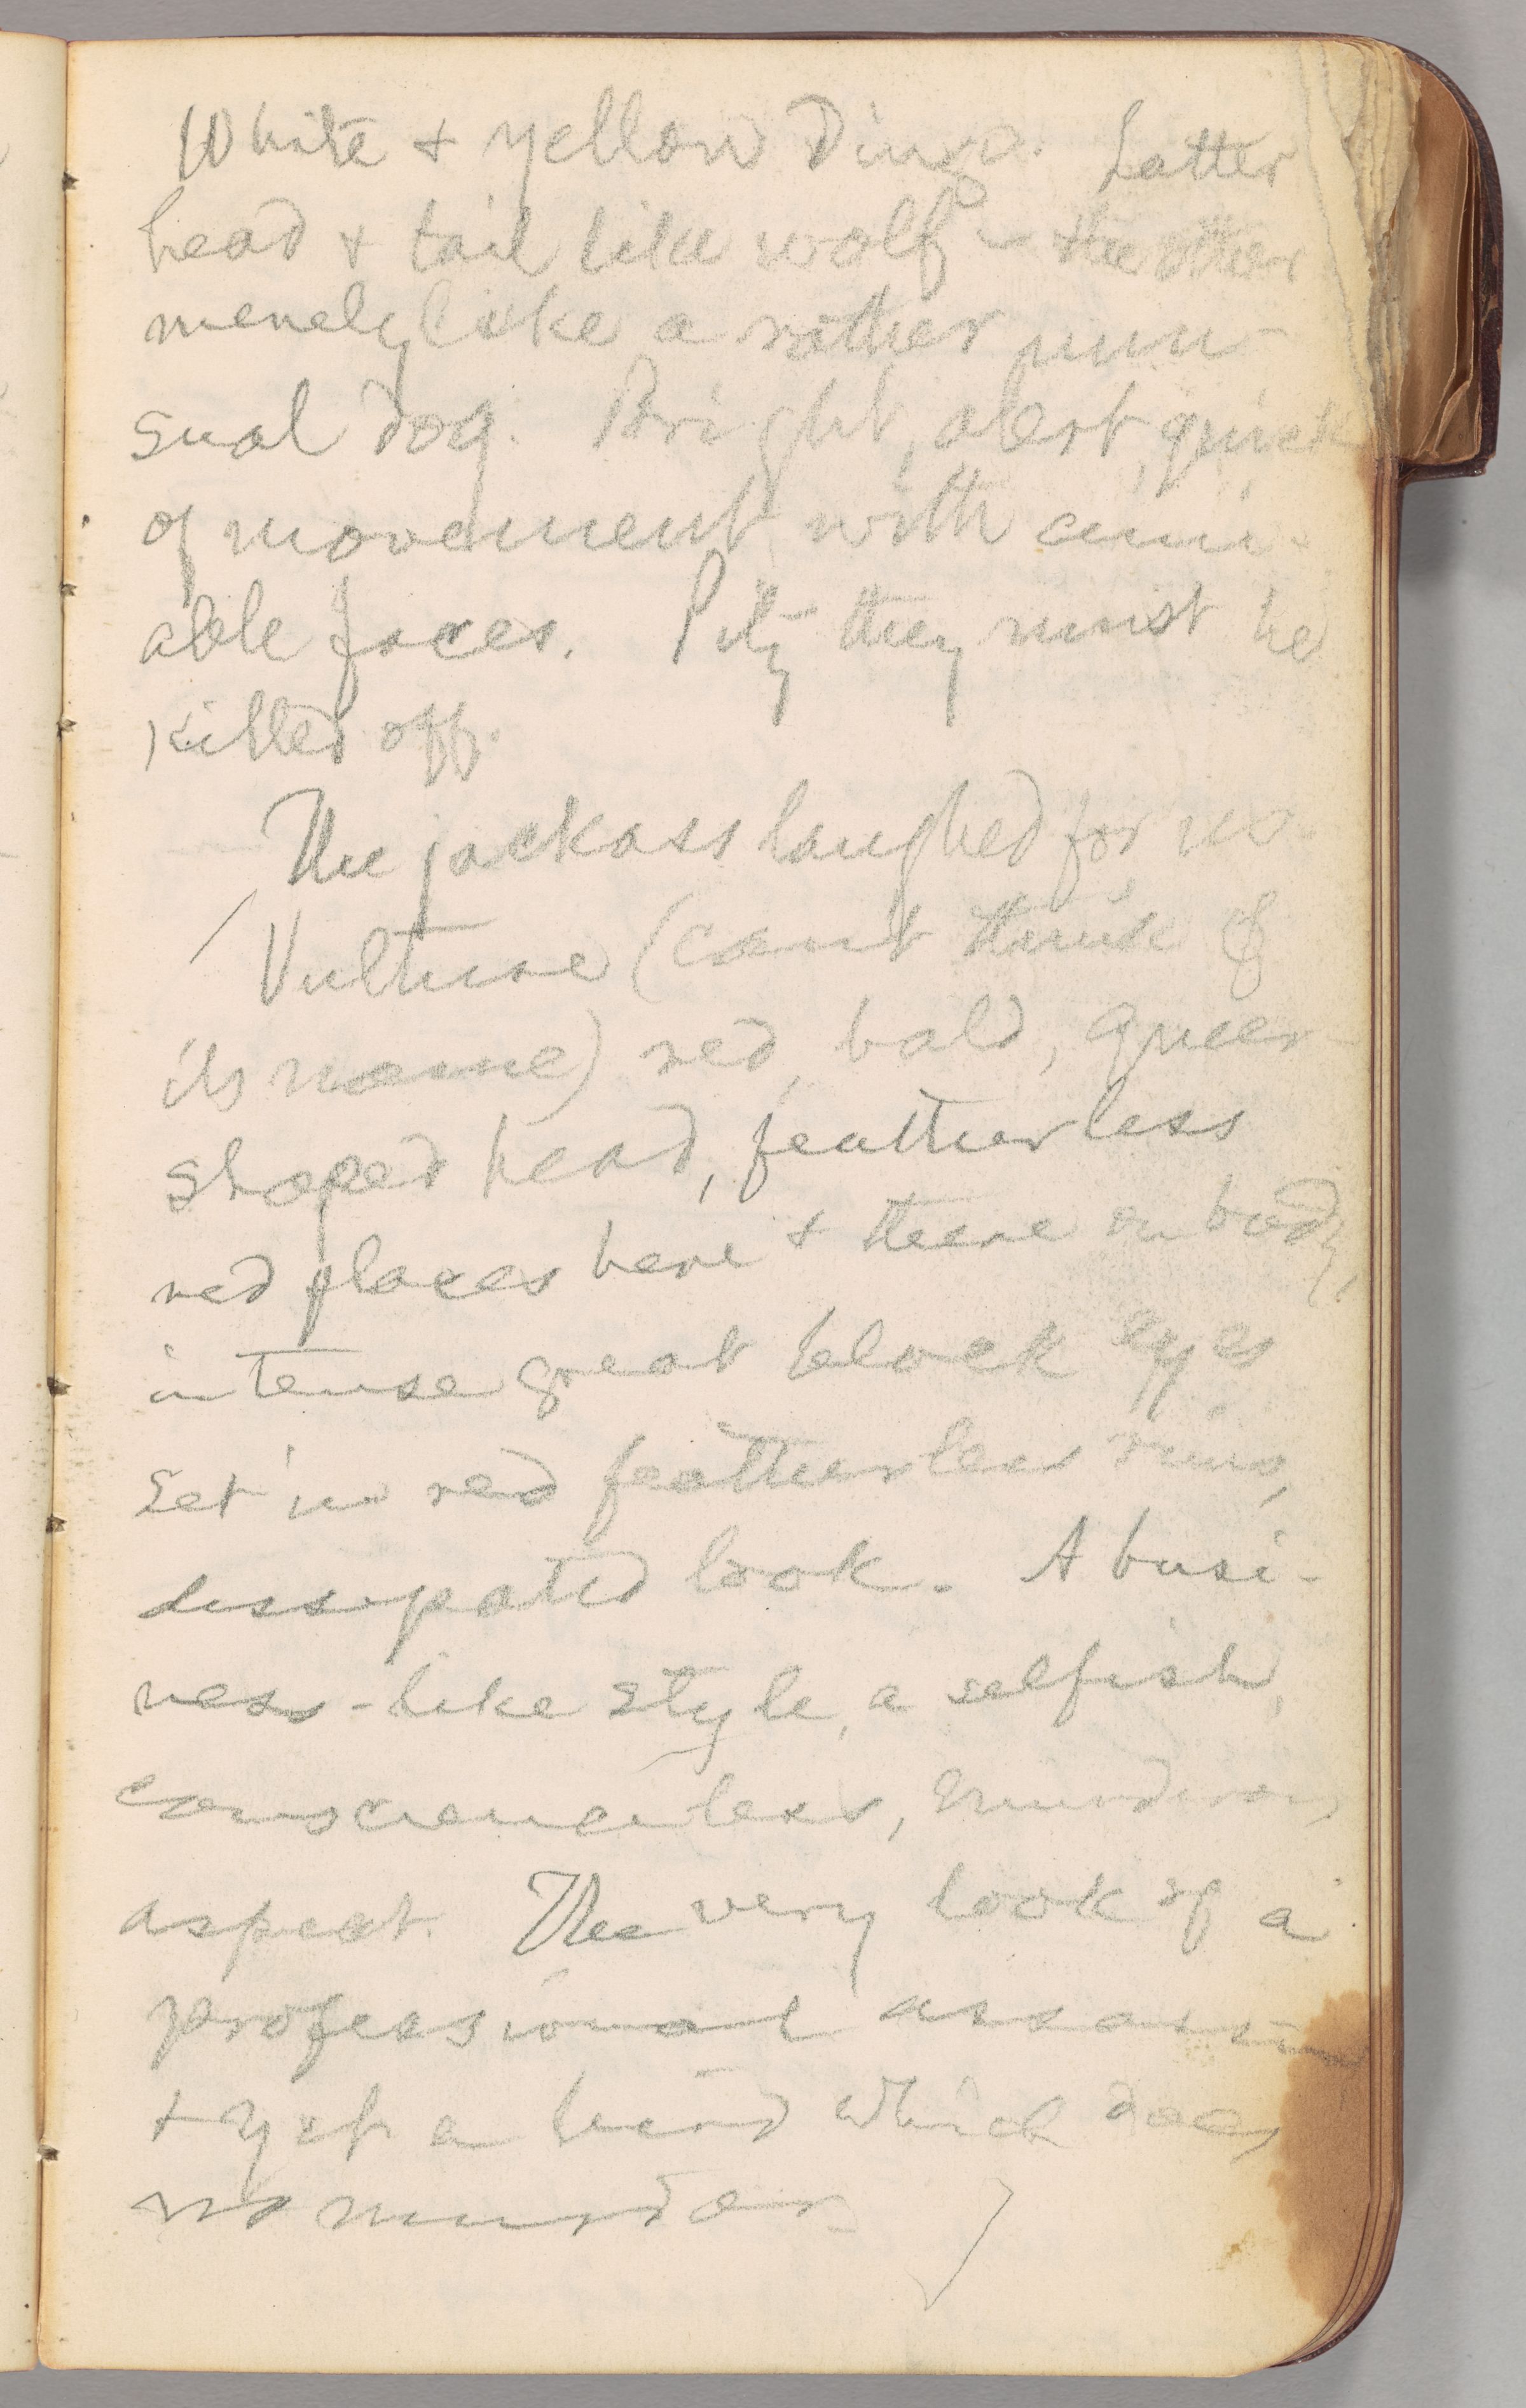 White + yellow Dingo. Latter
head + tail like wolf – the other
merely like a rather unu-
sual dog. Bright, alert, quick
of movement, with ami-
able faces. Pity they must be
killed off.
The jackass laughed for us.
Vulture (cant think of
its name) red, bald, queer-
shaped head, featherless
red places here + there on body,
intense great black eyes
set in red featherless rims,
dissipated look. A busi-
ness-like style, a selfish,
conscienceless, murderous
aspect. The very look of a
professional assassin
+ yet a bird which does
no murder.